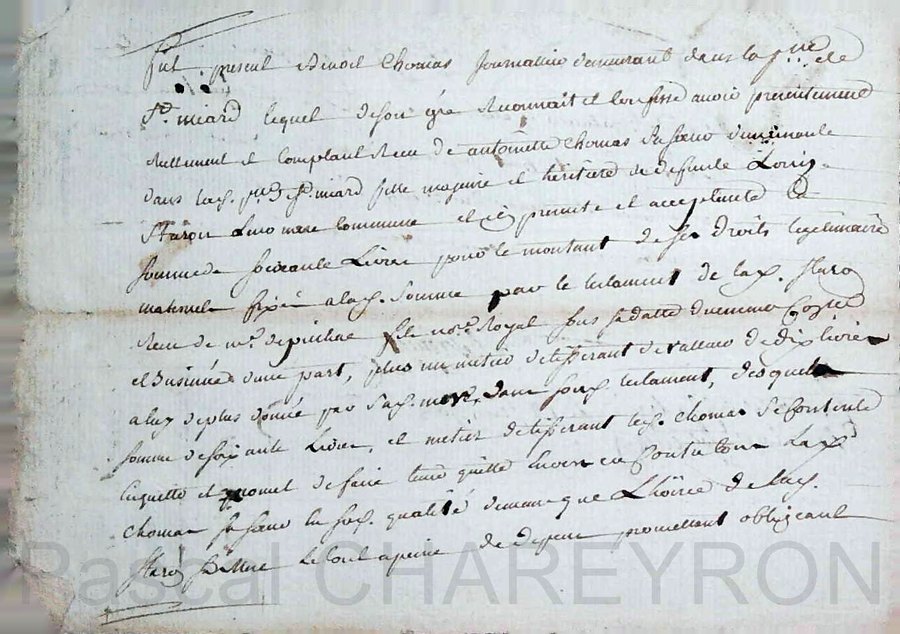 fut present Benoit Chomas Journalier demeurant dans la p.sse de
St. miard lequel de son gré Reconnait et Confesse avoir presentement
Reellement et Comptant Receu de antoinette Chomas Sa sœur demeurante
dans lad. p.sse de St. miard fille majeure et heritiere de defunte Louise
Staron Leur mere Commune et presente et acceptante La
somme de soixante Livres pour le montant de ses droits legitimaire
maternel fixé a lad. Somme par le testament de lad. Staron
Receu de me. not.re Royal sous sa datte duement Controllé
et Insinué d'une part, plus un metier de tisserant de valleur de dix livres
a luy de plus donné par sad. mere, dans sond. testament, desquelle
somme de soixante Livres, et metier de tisserant led. Chomas Se Contente
En quitte et promet de faire tenir quitte Envers et Contre tous Lad.
Chomas sa sœur En sad. qualité de meme que L'hoirie de lad.
Staron Sa Mere Le tout a peine de depens promettant obligeant
Pascal CHAREYRON